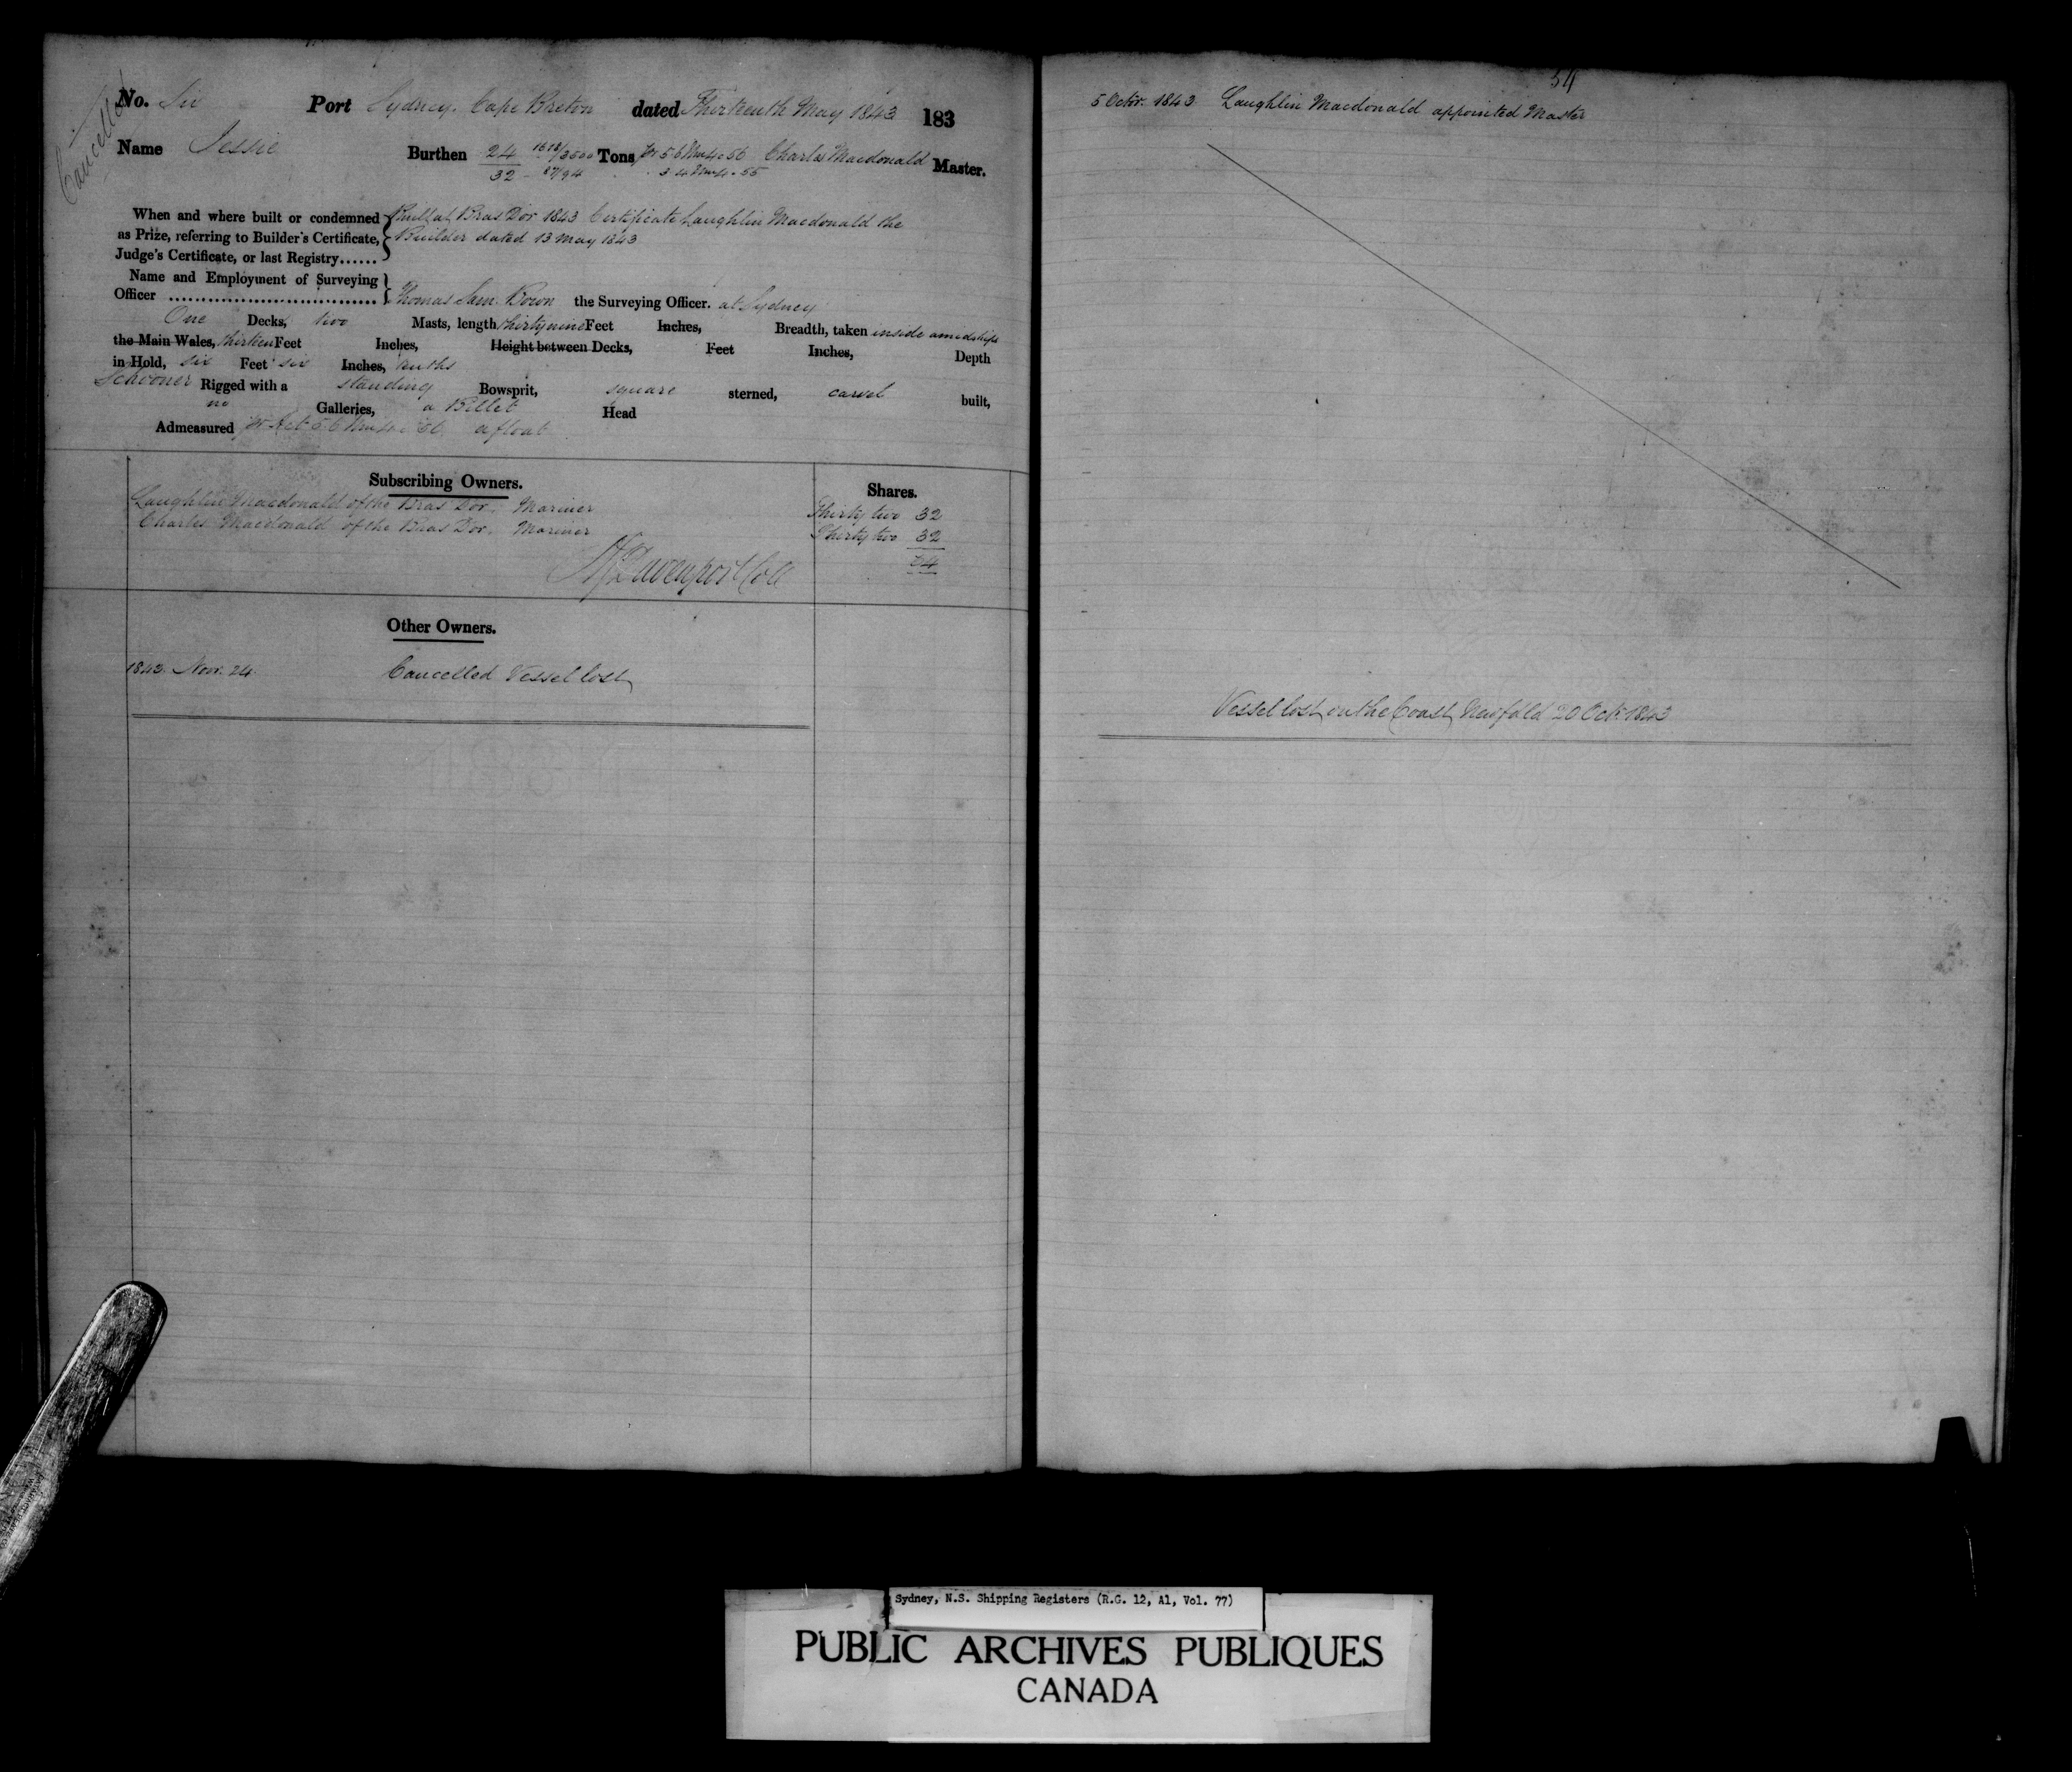 Cancelled
No. Six Port Sydney. Cape Breton dated Thirteenth May 1843 183
Name Jessie Burthen 24 1618/3500 Tons pr 5 & 6 Wm 4 c 56 Charles Macdonald Master.
32 - 87/94 3 & 4 Wm 4 - 55
When and where built or condemned Built at Bras Dor 1843 Certificate Laughlin Macdonald the
as Prize, referring to Builder's Certificate, Builder dated 13 May 1843
Judge's Certificate, or last Registry......
Name and Employment of Surveying
Officer Thomas Sam. Bown the Surveying Officer. at Sydney
One Decks, two Masts, length thirty nine Feet Inches, Breadth, taken inside amidships
the Main Wales, thirteen Feet Inches, Height between Decks, Feet Inches, Depth
in Hold, six Feet six Inches, tenths
Schooner Rigged with a standing Bowsprit, square sterned, carvel built,
no Galleries, a Billet Head
Admeasured pr Act 5 & 6 Wm 4 c 56 afloat
Subscribing Owners. Shares.
Laughlin Macdonald of the Bras Dor. Mariner Thirty two 32
Charles Macdonald of the Bras Dor. Mariner Thirty two 32
Davenport Coll 64
Other Owners.
1843 Nov. 24. Cancelled Vessel lost
54
5 Octr. 1843 Laughlin Macdonald appointed Master
Vessel lost on the Coast Newfdld 20 Oct. 1843
Sydney, N.S. Shipping Registers (R.G. 12, A1, Vol. 77)
PUBLIC ARCHIVES PUBLIQUES
CANADA